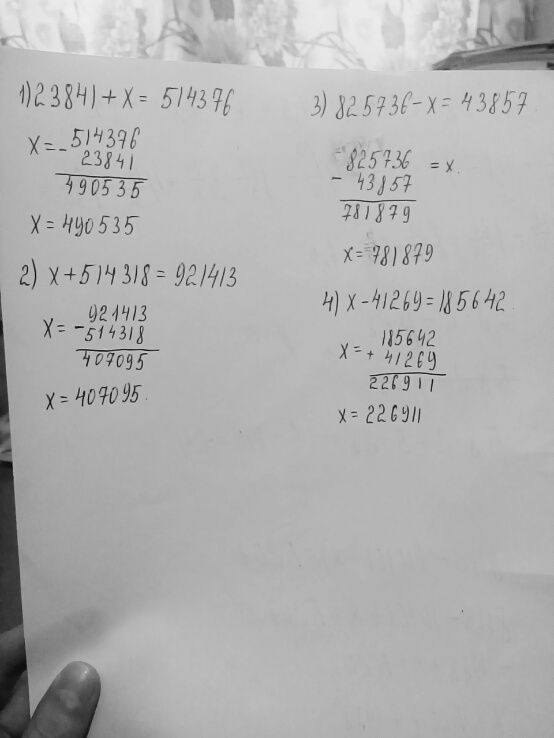 1) 23841 + x = 514376
x = - 514376
23841
490535
x = 490535
2) x + 514318 = 921413
x = - 921413
514318
407095
x = 407095.
3) 825736 - x = 43857
- 825736 = x.
43857
781879
x = 781879
4) x - 41269 = 185642
x = + 185642
41269
226911
x = 226911